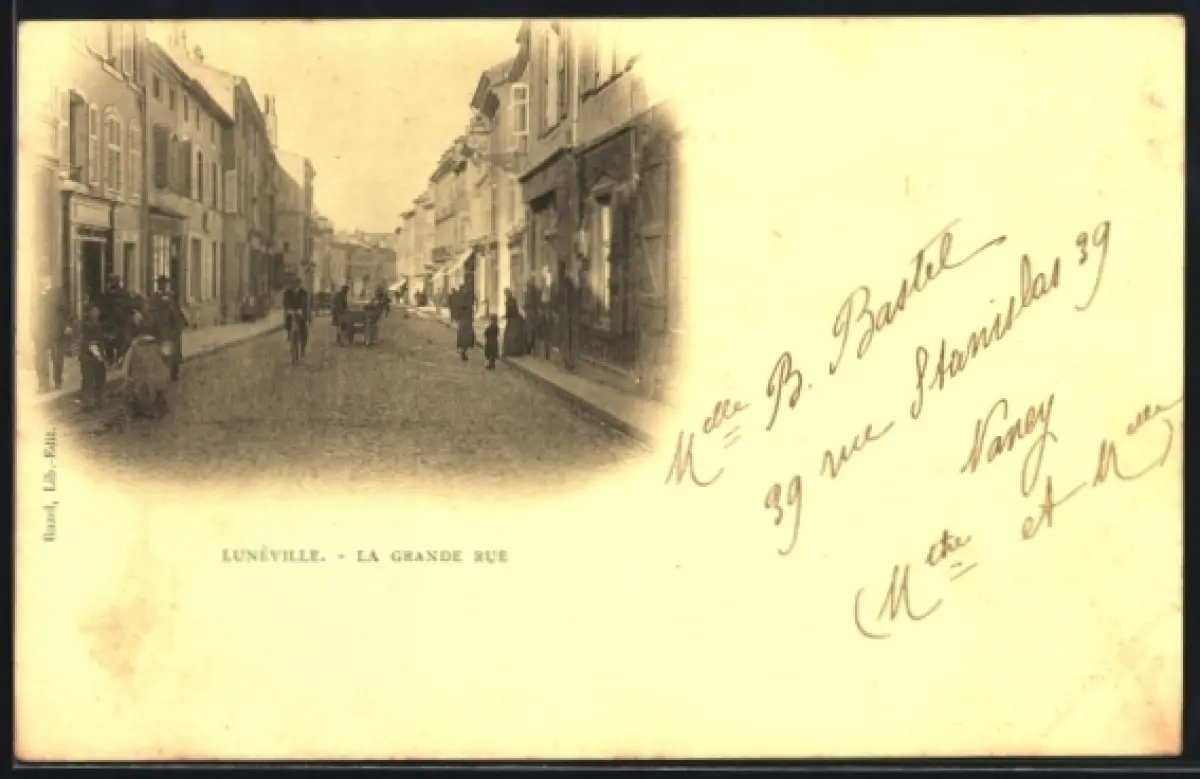 Bazel, Lib.-Edit.
LUNÉVILLE. - LA GRANDE RUE
Mlle B. Bastel
39 rue Stanislas 39
Nancy
(Mthe et Mlle)